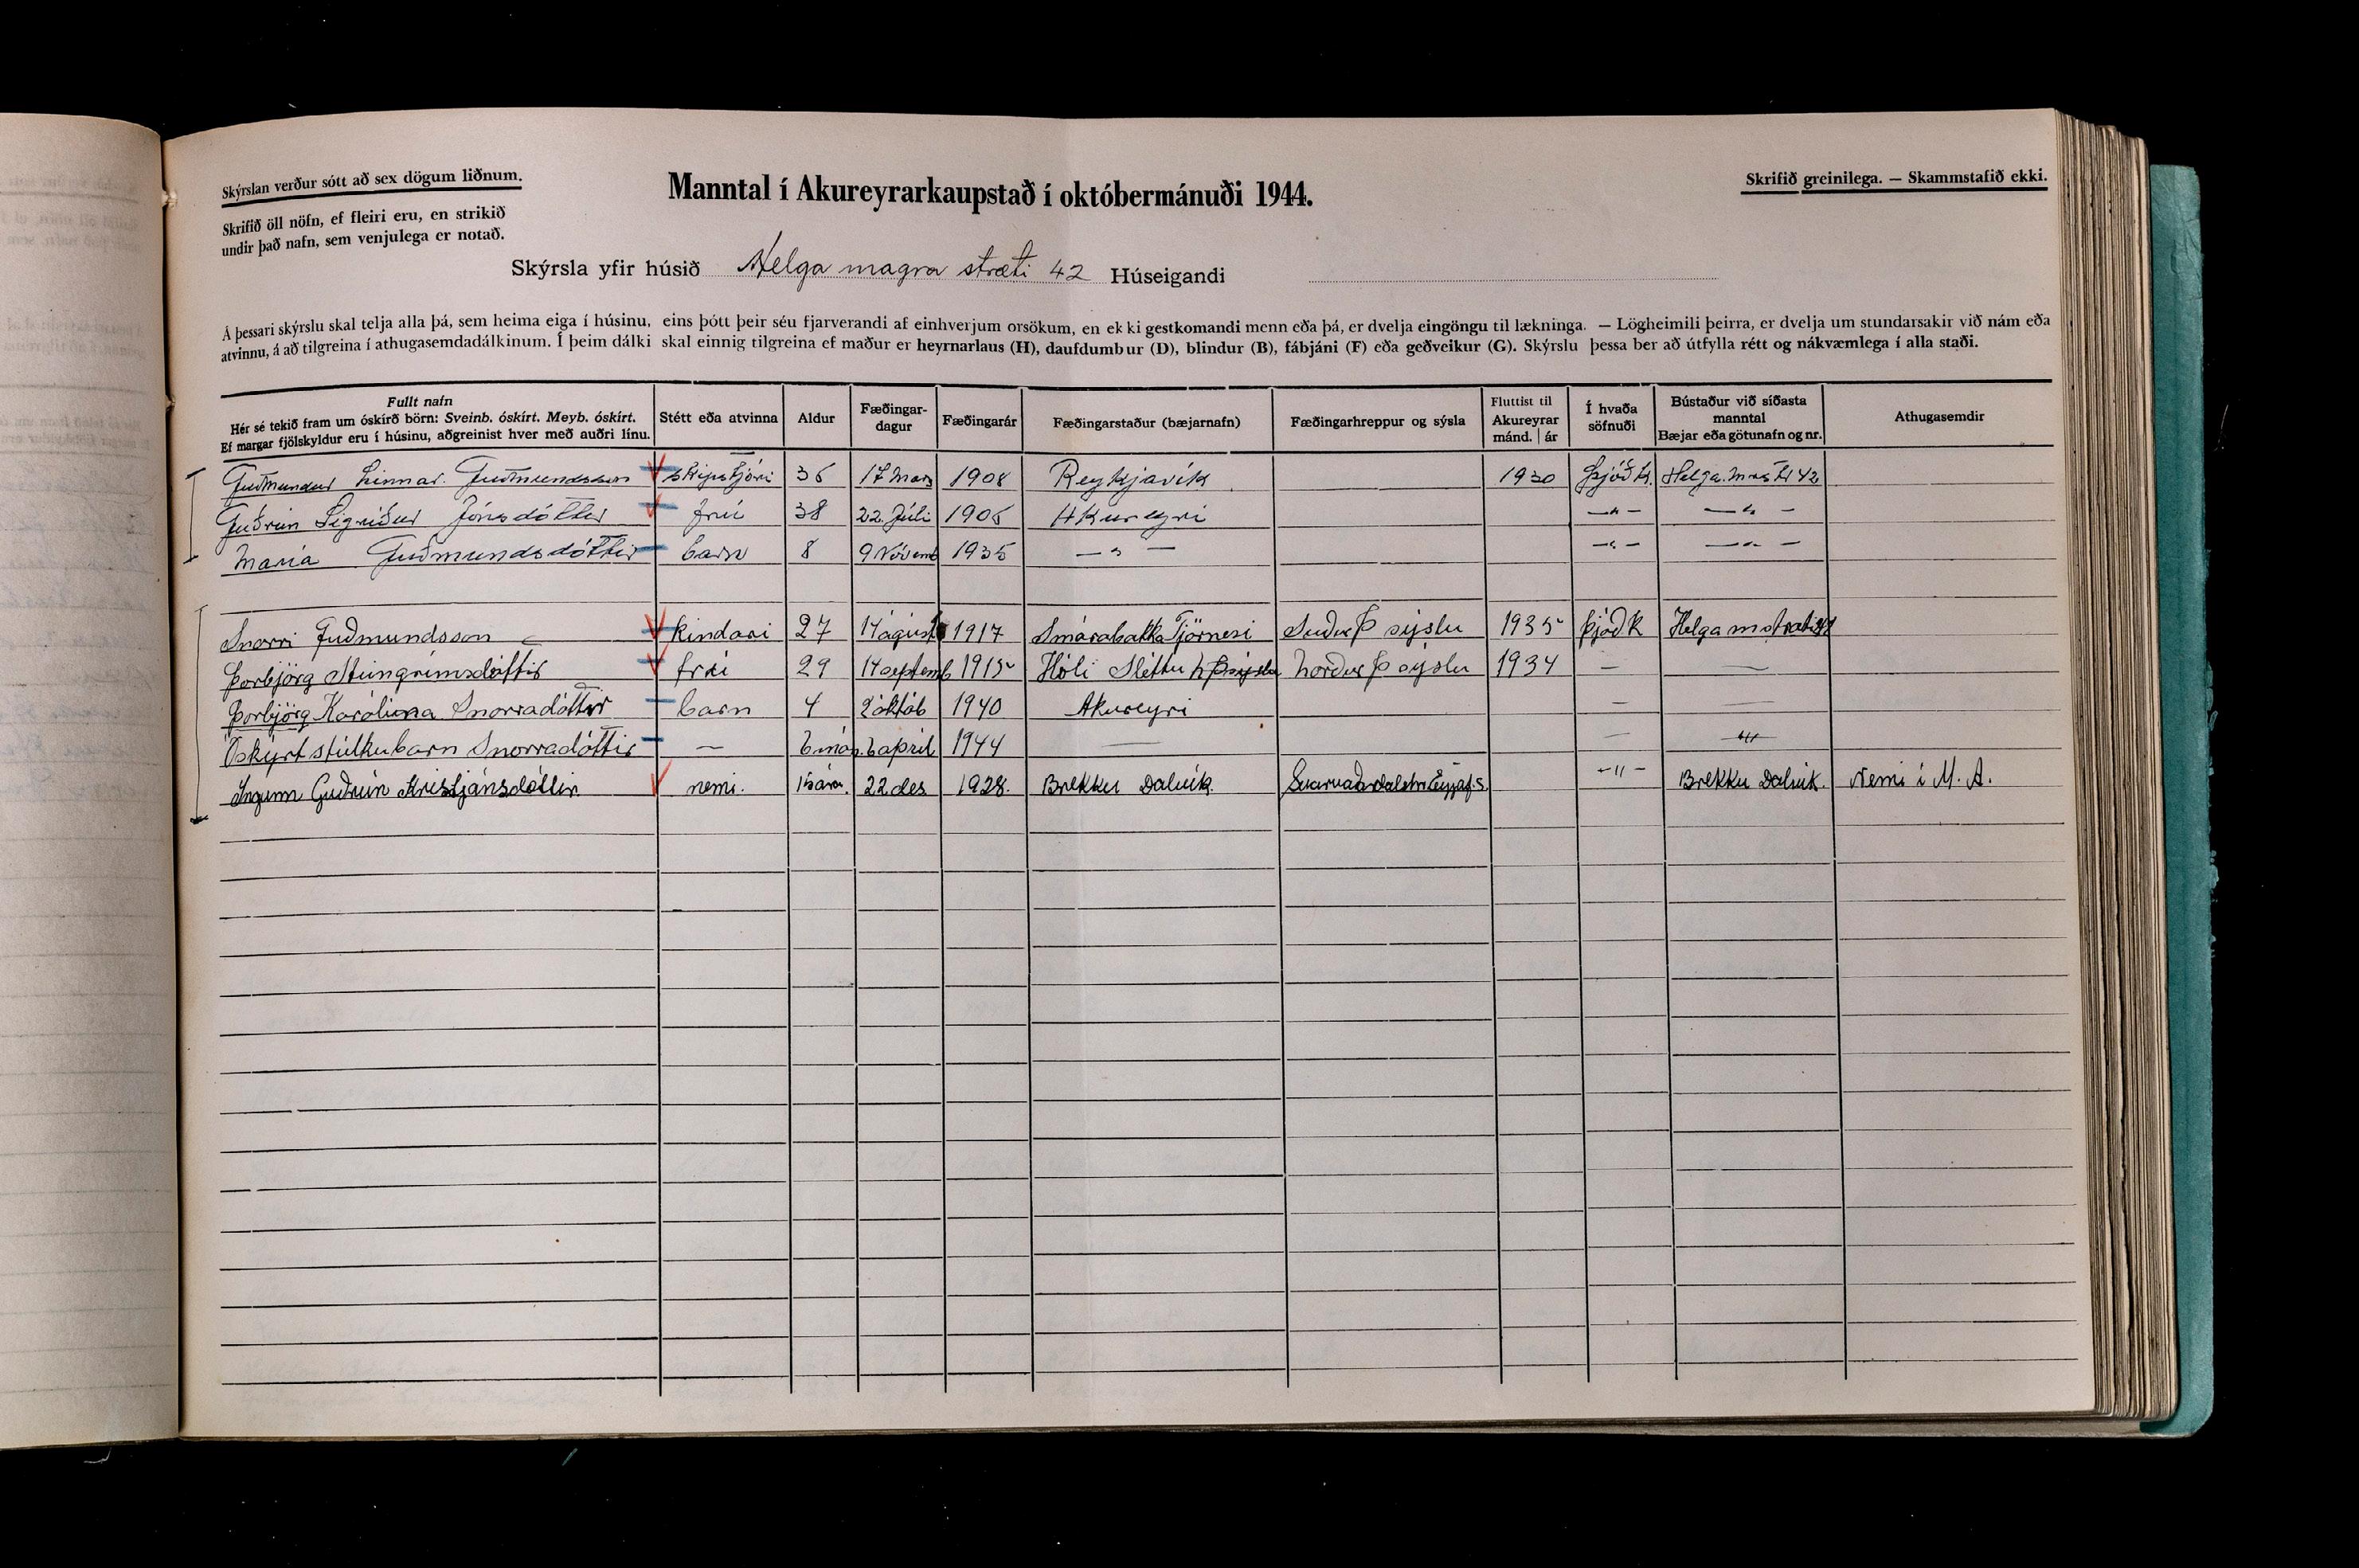 Skýrslan verður sótt að sex dögum liðnum.
Skrifið öll nöfn, ef fleiri eru, en strikið
undir það nafn, sem venjulega er notað.
Manntal í Akureyrarkaupstað í októbermánuði 1944.
Skrifið greinilega. — Skammstafið ekki.
Skýrsla yfir húsið Helga magra stræti 42 Húseigandi
Á þessari skýrslu skal telja alla þá, sem heima eiga í húsinu, eins þótt þeir séu fjarverandi af einhverjum orsökum, en ekki gestkomandi menn eða þá, er dvelja eingöngu til lækninga. — Lögheimili þeirra, er dvelja um stundarsakir við nám eða
atvinnu, á að tilgreina í athugasemdadálkinum. Í þeim dálki skal einnig tilgreina ef maður er heyrnarlaus (H), daufdumbur (D), blindur (B), fábjáni (F) eða geðveikur (G). Skýrslu þessa ber að útfylla rétt og nákvæmlega í alla staði.
Fullt nafn
Hér sé tekið fram um óskírð börn: Sveinb. óskírt. Meyb. óskírt.
Ef margar fjölskyldur eru í húsinu, aðgreinist hver með auðri línu.
Stétt eða atvinna
Aldur
Fæðingar-
dagur
Fæðingarár
Fæðingarstaður (bæjarnafn)
Fæðingarhreppur og sýsla
Fluttist til
Akureyrar
mánd. | ár
Í hvaða
söfnuði
Bústaður við síðasta
manntal
Bæjar eða götunafn og nr.
Athugasemdir
Guðmundur Linnar. Guðmundsson skipstjóri 36 17 Mars 1908 Reykjavík 1930 Þjóðk.
Guðrún Sigríður Jónsdóttir frú 38 22. Júli 1906 Akureyri —"— —"—
María Guðmundsdóttir barn 8 9 Nóvemb 1935 —"— —"— —"—
Snorri Guðmundsson kindari 27 14 ágúst 1917 Smárabakka Tjörnesi Suður Þ sýslu 1935 Þjóðk
Þorbjörg Steingrímsdóttir frú 29 1 septemb 1915 Hóli Sléttu Norður Þ sýslu 1934 — —
Þorbjörg Karólína Snorradóttir barn 4 2 októb 1940 Akureyri — —
Óskýrt stúlkubarn Snorradóttir — 6 mán. 6 apríl 1944 — — "
Ingunn Guðrún Kristjánsdóttir. nemi. 15 ára. 22 des 1928. Brekku Dalvík. —"— Brekku Dalvík. Nemi í M. A.